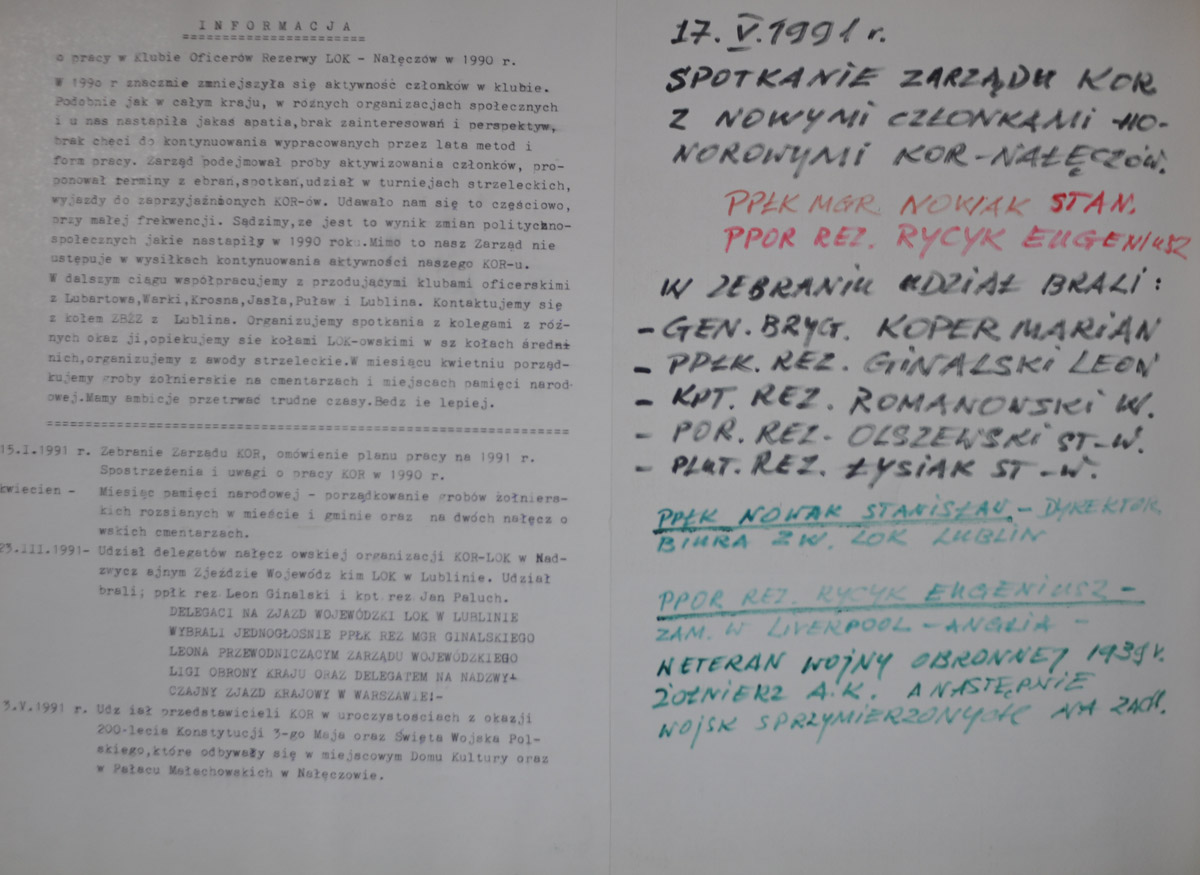 I N F O R M A C J A
=====================
o pracy w Klubie Oficerów Rezerwy LOK - Nałęczów w 1990 r.
W 199o r znacznie zmniejszyła się aktywność członków w klubie.
Podobnie jak w całym kraju, w różnych organizacjach społecznych
i u nas nastąpiła jakaś apatia,brak zainteresowań i perspektyw,
brak chęci do kontynuowania wypracowanych przez lata metod i
form pracy. Zarząd podejmował próby aktywizowania członków, pro-
ponował terminy z ebrań,spotkań,udział w turniejach strzeleckich,
wyjazdy do zaprzyjaźnionych KOR-ów. Udawało nam się to częściowo,
przy małej frekwencji. Sądzimy,ze jest to wynik zmian politycnno-
społecznych jakie nastąpiły w 1990 roku.Mimo to nasz Zarząd nie
ustępuje w wysiłkach kontynuowania aktywności naszego KOR-u.
W dalszym ciągu współpracujemy z przodującymi klubami oficerskimi
z Lubartowa,Warki,Krosna,Jasła,Puław i Lublina. Kontaktujemy się
z kołem ZBŻZ z Lublina. Organizujemy spotkania z kolegami z róż-
nych okaz ji,opiekujemy sie kołami LOK-owskimi w sz kołach średni
nich,organizujemy z awody strzeleckie.W miesiącu kwietniu porząd-
kujemy groby żołnierskie na cmentarzach i miejscach pamięci narod-
owej.Mamy ambicje przetrwać trudne czasy.Bedz ie lepiej.
=============================================================
15.I.1991 r. Zebranie Zarządu KOR, omówienie planu pracy na 1991 r.
Spostrzeżenia i uwagi o pracy KOR w 1990 r.
kwiecien - Miesiąc pamięci narodowej - porządkowanie grobów żołniers-
kich rozsianych w mieście i gminie oraz na dwóch nałęcz o
wskich cmentarzach.
23.III.1991- Udział delegatów nałęcz owskiej organizacji KOR-LOK w Nad-
zwycz ajnym Zjeździe Wojewódz kim LOK w Lublinie. Udział
brali; ppłk rez Leon Ginalski i kpt.rez Jan Paluch.
DELEGACI NA ZJAZD WOJEWÓDZKI LOK W LUBLINIE
WYBRALI JEDNOGŁOSNIE PPŁK REZ MGR GINALSKIEGO
LEONA PRZEWODNICZĄCYM ZARZĄDU WOJEWÓDZKIEGO
LIGI OBRONY KRAJU ORAZ DELEGATEM NA NADZWY-
CZAJNY ZJAZD KRAJOWY W WARSZAWIE!-
3.V.1991 r. Udz iał przedstawicieli KOR w uroczystościach z okazji
200-lecia Konstytucji 3-go Maja oraz Święta Wojska Pol-
skiego,które odbywały się w miejscowym Domu Kultury oraz
w Pałacu Małachowskich w Nałęczowie.
17. V. 1991 r.
SPOTKANIE ZARZĄDU KOR
Z NOWYMI CZŁONKAMI HO-
NOROWYMI KOR-NAŁĘCZÓW.
PPŁK MGR. NOWAK STAN.
PPOR REZ. RYCYK EUGENIUSZ
W ZEBRANIU UDZIAŁ BRALI:
- GEN. BRYG. KOPER MARIAN
- PPŁK. REZ. GINALSKI LEON
- KPT. REZ. ROMANOWSKI W.
- POR. REZ. OLSZEWSKI ST-W.
- PLUT. REZ. ŁYSIAK ST-W.
PPŁK NOWAK STANISŁAW - DYREKTOR
BIURA ZW. LOK LUBLIN
PPOR REZ. RYCYK EUGENIUSZ -
ZAM. W LIVERPOOL - ANGLIA -
WETERAN WOJNY OBRONNEJ 1939 r.
ŻOŁNIERZ A.K. A NASTĘPNIE
WOJSK SPRZYMIERZONYCH NA ZACH.